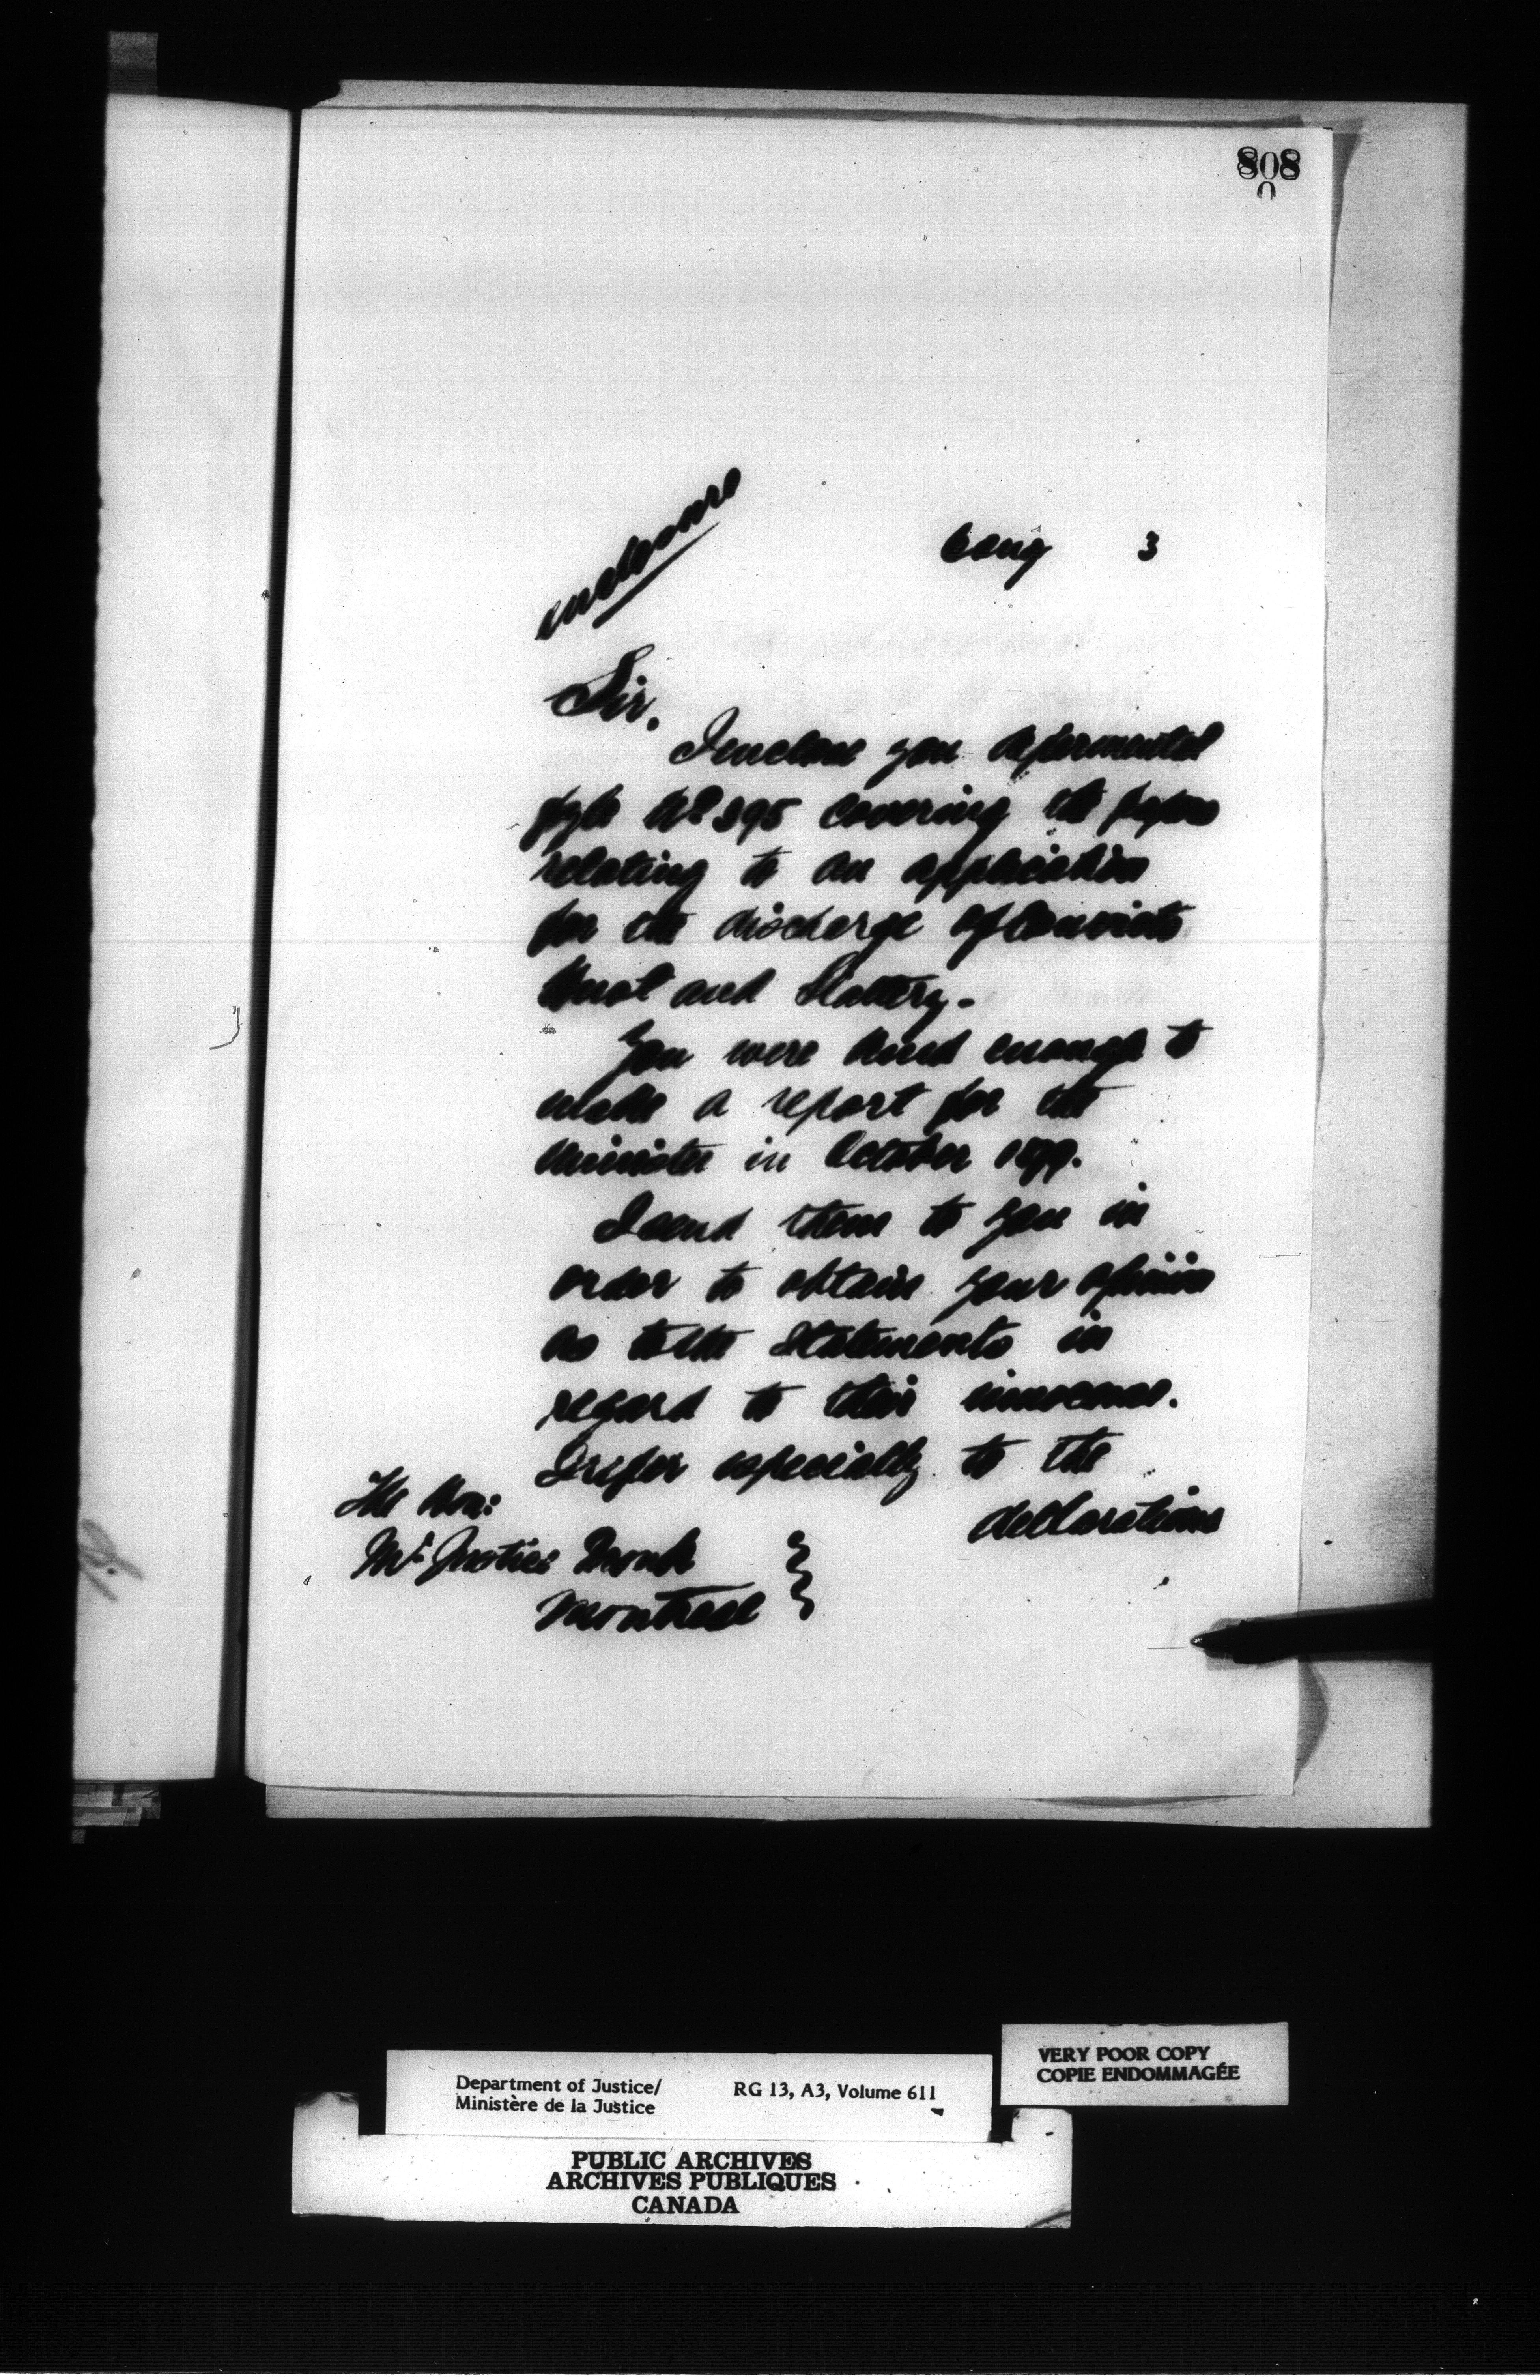 808
0
enclosure
Aug 3
Sir.
I enclose you departmental
fyle No 395 covering the papers
relating to an application
for the discharge of Convicts
and Slattery.
You were kind enough to
make a report for the
Minister in October 1879.
I send them to you in
order to obtain your opinion
as to the statements in
regard to their innocence.
I refer especially to the
declarations
The Hon:
Mr Justice Monk
Montreal
VERY POOR COPY
COPIE ENDOMMAGÉE
Department of Justice/ RG 13, A3, Volume 611
Ministère de la Justice
PUBLIC ARCHIVES
ARCHIVES PUBLIQUES
CANADA